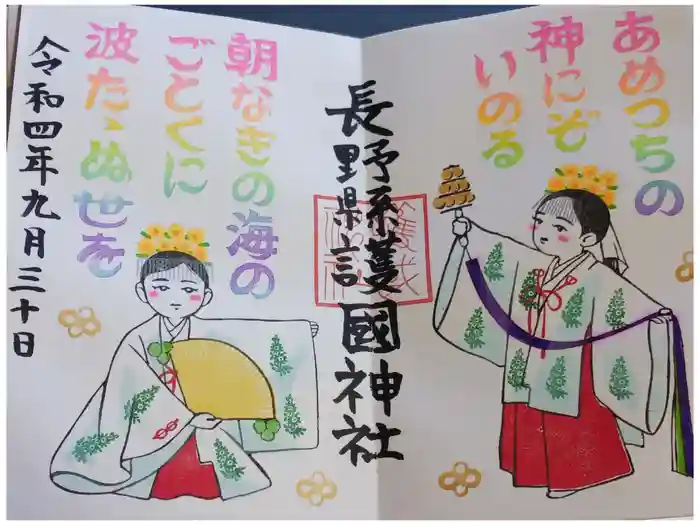 あめつちの
神にぞ
いのる
朝なぎの海の
ごとくに
波たゝぬ世を
長野縣護國神社
令和四年九月三十日